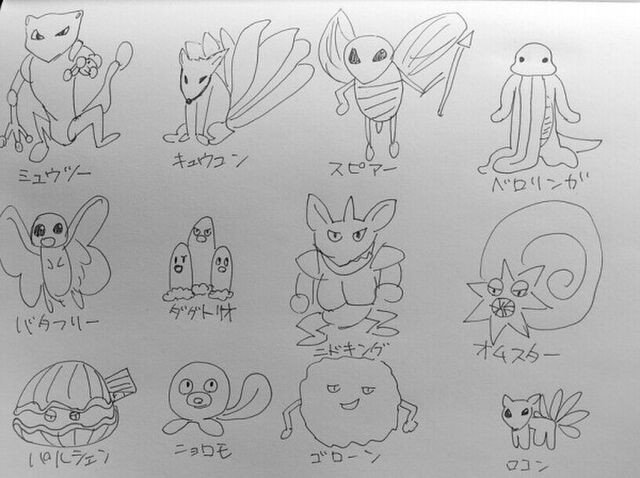 ミュウツー
キュウコン
スピアー
ベロリンガ
バタフリー
ダグトリオ
ニドキング
オムスター
パルシェン
ニョロモ
ゴローン
ロコン